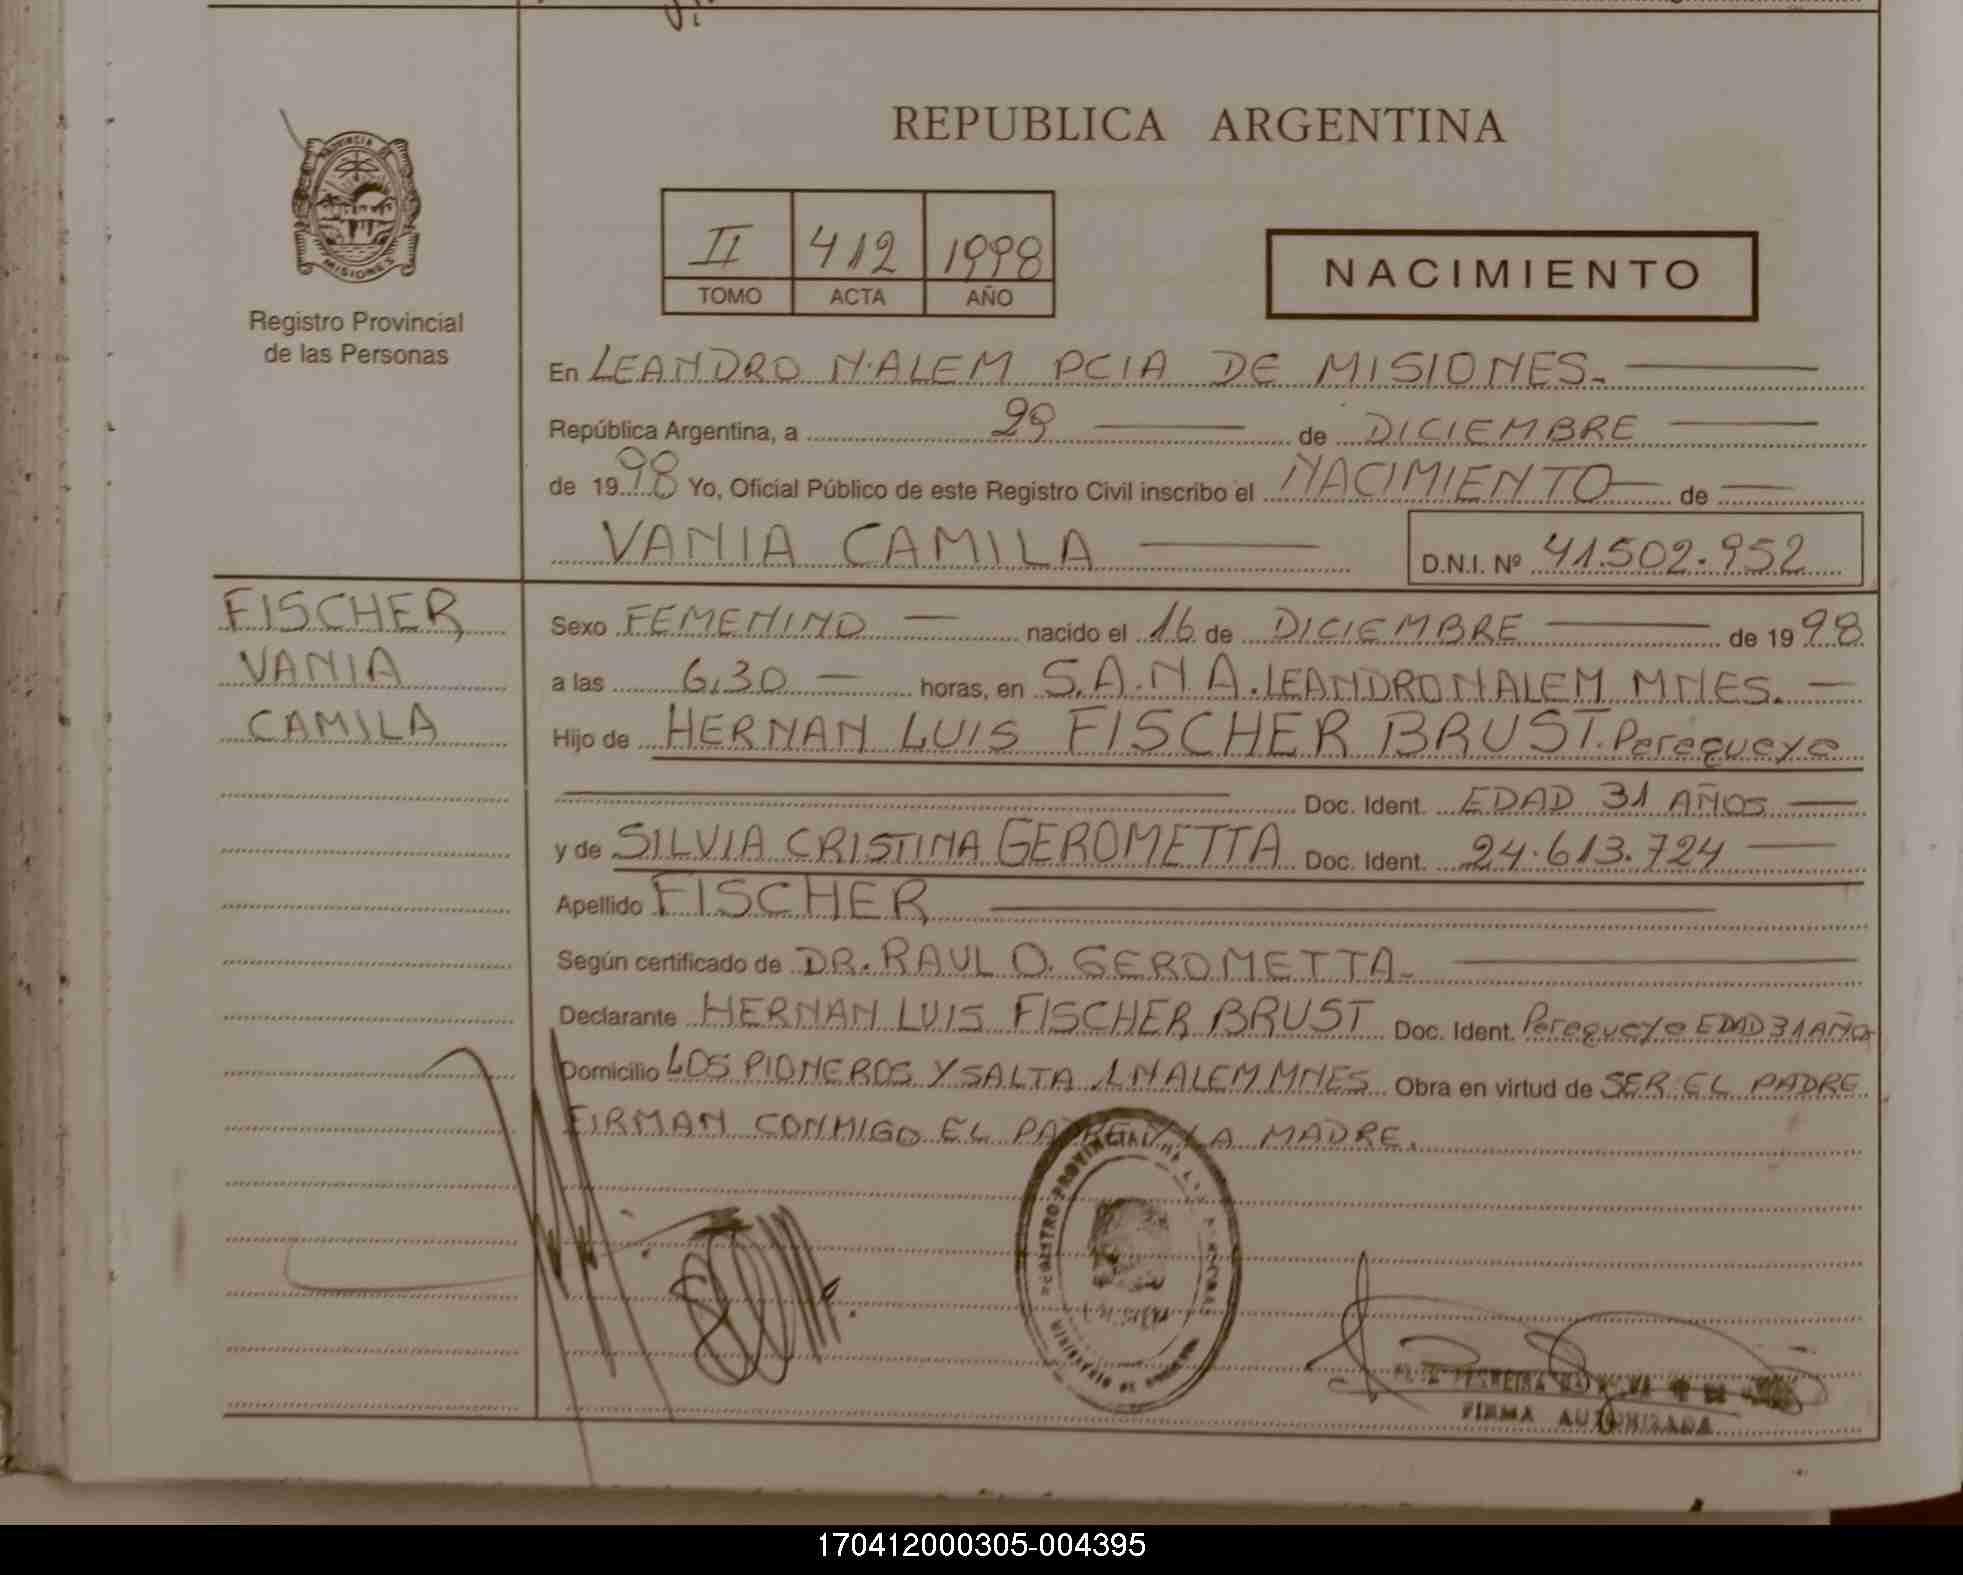 REPUBLICA ARGENTINA
PROVINCIA DE
MISIONES
Registro Provincial
de las Personas
II 412 1998
TOMO ACTA AÑO
NACIMIENTO
En LEANDRO N.ALEM PCIA DE MISIONES.
República Argentina, a 29 de DICIEMBRE
de 1998 Yo, Oficial Público de este Registro Civil inscribo el NACIMIENTO de
VANIA CAMILA D.N.I. Nº 41.502.952
FISCHER
VANIA
CAMILA
Sexo FEMENINO nacido el 16 de DICIEMBRE de 1998
a las 6,30 horas, en S.A.N.A. LEANDRO N ALEM MNES.
Hijo de HERNAN LUIS FISCHER BRUST. Paraguayo
Doc. Ident. EDAD 31 AÑOS
y de SILVIA CRISTINA GEROMETTA Doc. Ident. 24.613.724
Apellido FISCHER
Según certificado de DR. RAUL O. GEROMETTA.
Declarante HERNAN LUIS FISCHER BRUST Doc. Ident. Paraguayo EDAD 31 AÑOS
Domicilio LOS PIONEROS Y SALTA L N ALEM MNES Obra en virtud de SER EL PADRE
FIRMAN CONMIGO EL PADRE Y LA MADRE.
FIRMA AUTORIZADA
170412000305-004395